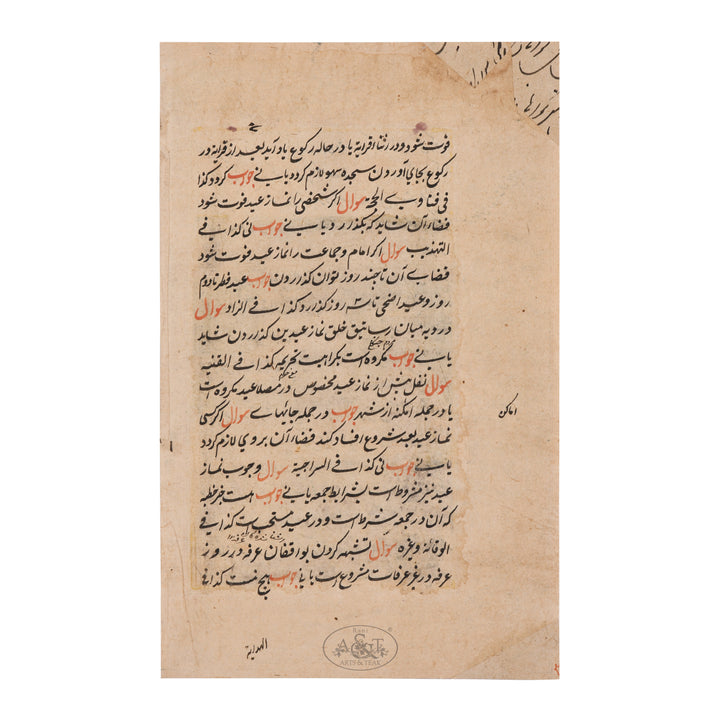 فوت شود و در ثنا اقرایة یا در حاله رکوع یاد آید بعد از قرایة در
رکوع بجای آوردن سجده سهو لازم کردد یا نی جواب کردد کذا
فی فتاوی الحجة سوال اکر شخصی را نماز عید فوت شود
قضاء آن شاید که بکذارد یا نی جواب نی کذا فی
التهذیب سوال اکر امام و جماعت را نماز عید فوت شود
قضای آن تا چند روز توان کذاردن جواب عید فطر تا دوم
روز و عید اضحی تا سه روز کذارد کذا فی الزاد سوال
در دیه میان رساتیق خلق نماز عیدین کذاردن شاید
یا نی جواب مکروه است بکراهت تحریمه کذا فی القنیه
سوال نفل پیش از نماز عید مخصوص در مصلا عید مکروه است
یا در جمله امکنه از شهر جواب در جمله جائهای سوال اکر کسی
نماز عید بعد شروع افساد کند قضاء آن بر وی لازم کردد
یا نی جواب نی کذا فی السراجیة سوال وجوب نماز
عید نیز مشروط است بشرایط جمعه یا نی جواب هست جز خطبه
که آن در جمعه شرط است و در عید مستحبات کذا فی
الوقایة وغیره سوال تشبه کردن بواقفان عرفه در روز
عرفه در غیر عرفات مشروع است یا نی جواب هیچ نیست کذا فی
اماکن
الهدایة
Rani
A&T
®
ARTS & TEAK